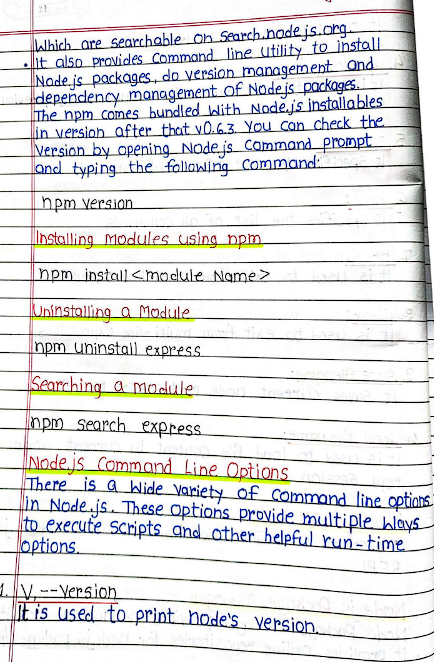 Which are searchable on search.node.js.org.
• It also provides Command line utility to install
Node.js packages, do version management and
dependency management of Nodejs packages.
The npm comes bundled with Node.js installables
in version after that v0.6.3. You can check the
version by opening Node.js Command prompt
and typing the following Command:
npm version
Installing Modules using npm
npm install <module Name>
Uninstalling a Module
npm uninstall express
Searching a module
npm search express
Node.js Command Line Options
There is a Wide Variety of command line options
in Node.js. These options provide multiple Ways
to execute scripts and other helpful run-time
options.
1. V, --Version
It is used to print node's version.